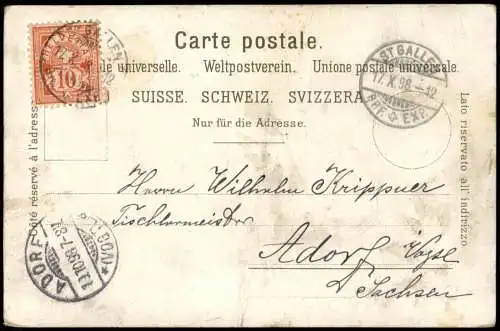 Carte postale.
Union postale universelle. Weltpostverein. Unione postale universale.
SUISSE. SCHWEIZ. SVIZZERA.
Nur für die Adresse.
10
ST. GALLEN
ST. GALLEN
11.X.98.-12
BRF. EXP.
Côté réservé à l'adresse.
Lato riservato all' indirizzo
Herrn Wilhelm Krippner
Tischlermeister
Adorf Vogse
Sachsen
ADORF
VOGTL.